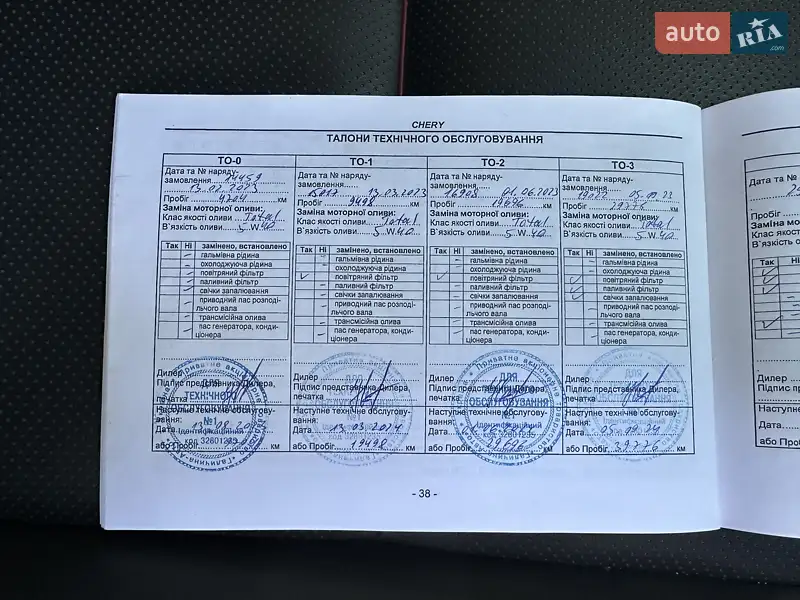 auto RIA.com
CHERY
ТАЛОНИ ТЕХНІЧНОГО ОБСЛУГОВУВАННЯ
ТО-0
Дата та № наряду-
замовлення 14459
13.02.2023
Пробіг 4204 км
Заміна моторної оливи:
Клас якості оливи Total
В`язкість оливи 5W40
Так Ні замінено, встановлено
гальмівна рідина
охолоджуюча рідина
повітряний фільтр
паливний фільтр
свічки запалювання
приводний пас розподі-
льчого вала
трансмісійна олива
пас генератора, конди-
ціонера
Дилер
Підпис представника Дилера,
печатка
Наступне технічне обслугову-
вання:
Дата
або Пробіг км
ТО-1
Дата та № наряду-
замовлення
13.03.2023
Пробіг 9498 км
Заміна моторної оливи:
Клас якості оливи Total
В`язкість оливи 5W40
Так Ні замінено, встановлено
гальмівна рідина
охолоджуюча рідина
повітряний фільтр
паливний фільтр
свічки запалювання
приводний пас розподі-
льчого вала
трансмісійна олива
пас генератора, конди-
ціонера
Дилер
Підпис представника Дилера,
печатка
Наступне технічне обслугову-
вання:
Дата 13.03.2024
або Пробіг 19498 км
ТО-2
Дата та № наряду-
замовлення
16908 01.06.2023
Пробіг км
Заміна моторної оливи:
Клас якості оливи Total
В`язкість оливи 5W40
Так Ні замінено, встановлено
гальмівна рідина
охолоджуюча рідина
повітряний фільтр
паливний фільтр
свічки запалювання
приводний пас розподі-
льчого вала
трансмісійна олива
пас генератора, конди-
ціонера
Дилер
Підпис представника Дилера,
печатка
ДЛЯ
ТЕХНІЧНОГО
ОБСЛУГОВУВАННЯ
№1
Ідентифікаційний
код 32601295
Наступне технічне обслугову-
вання:
Дата
або Пробіг км
ТО-3
Дата та № наряду-
замовлення
05.09.23
Пробіг 29776 км
Заміна моторної оливи:
Клас якості оливи Total
В`язкість оливи 5W40
Так Ні замінено, встановлено
гальмівна рідина
охолоджуюча рідина
повітряний фільтр
паливний фільтр
свічки запалювання
приводний пас розподі-
льчого вала
трансмісійна олива
пас генератора, конди-
ціонера
Дилер
Підпис представника Дилера,
печатка
Наступне технічне обслугову-
вання:
Дата 05.09.24
або Пробіг 39776 км
- 38 -
Дата та №
замовлення
Пробіг
Заміна моторної
Клас якості
В`язкість оливи
Так Ні
Дилер
Підпис
печатка
Наступне
вання:
Дата
або Пробіг